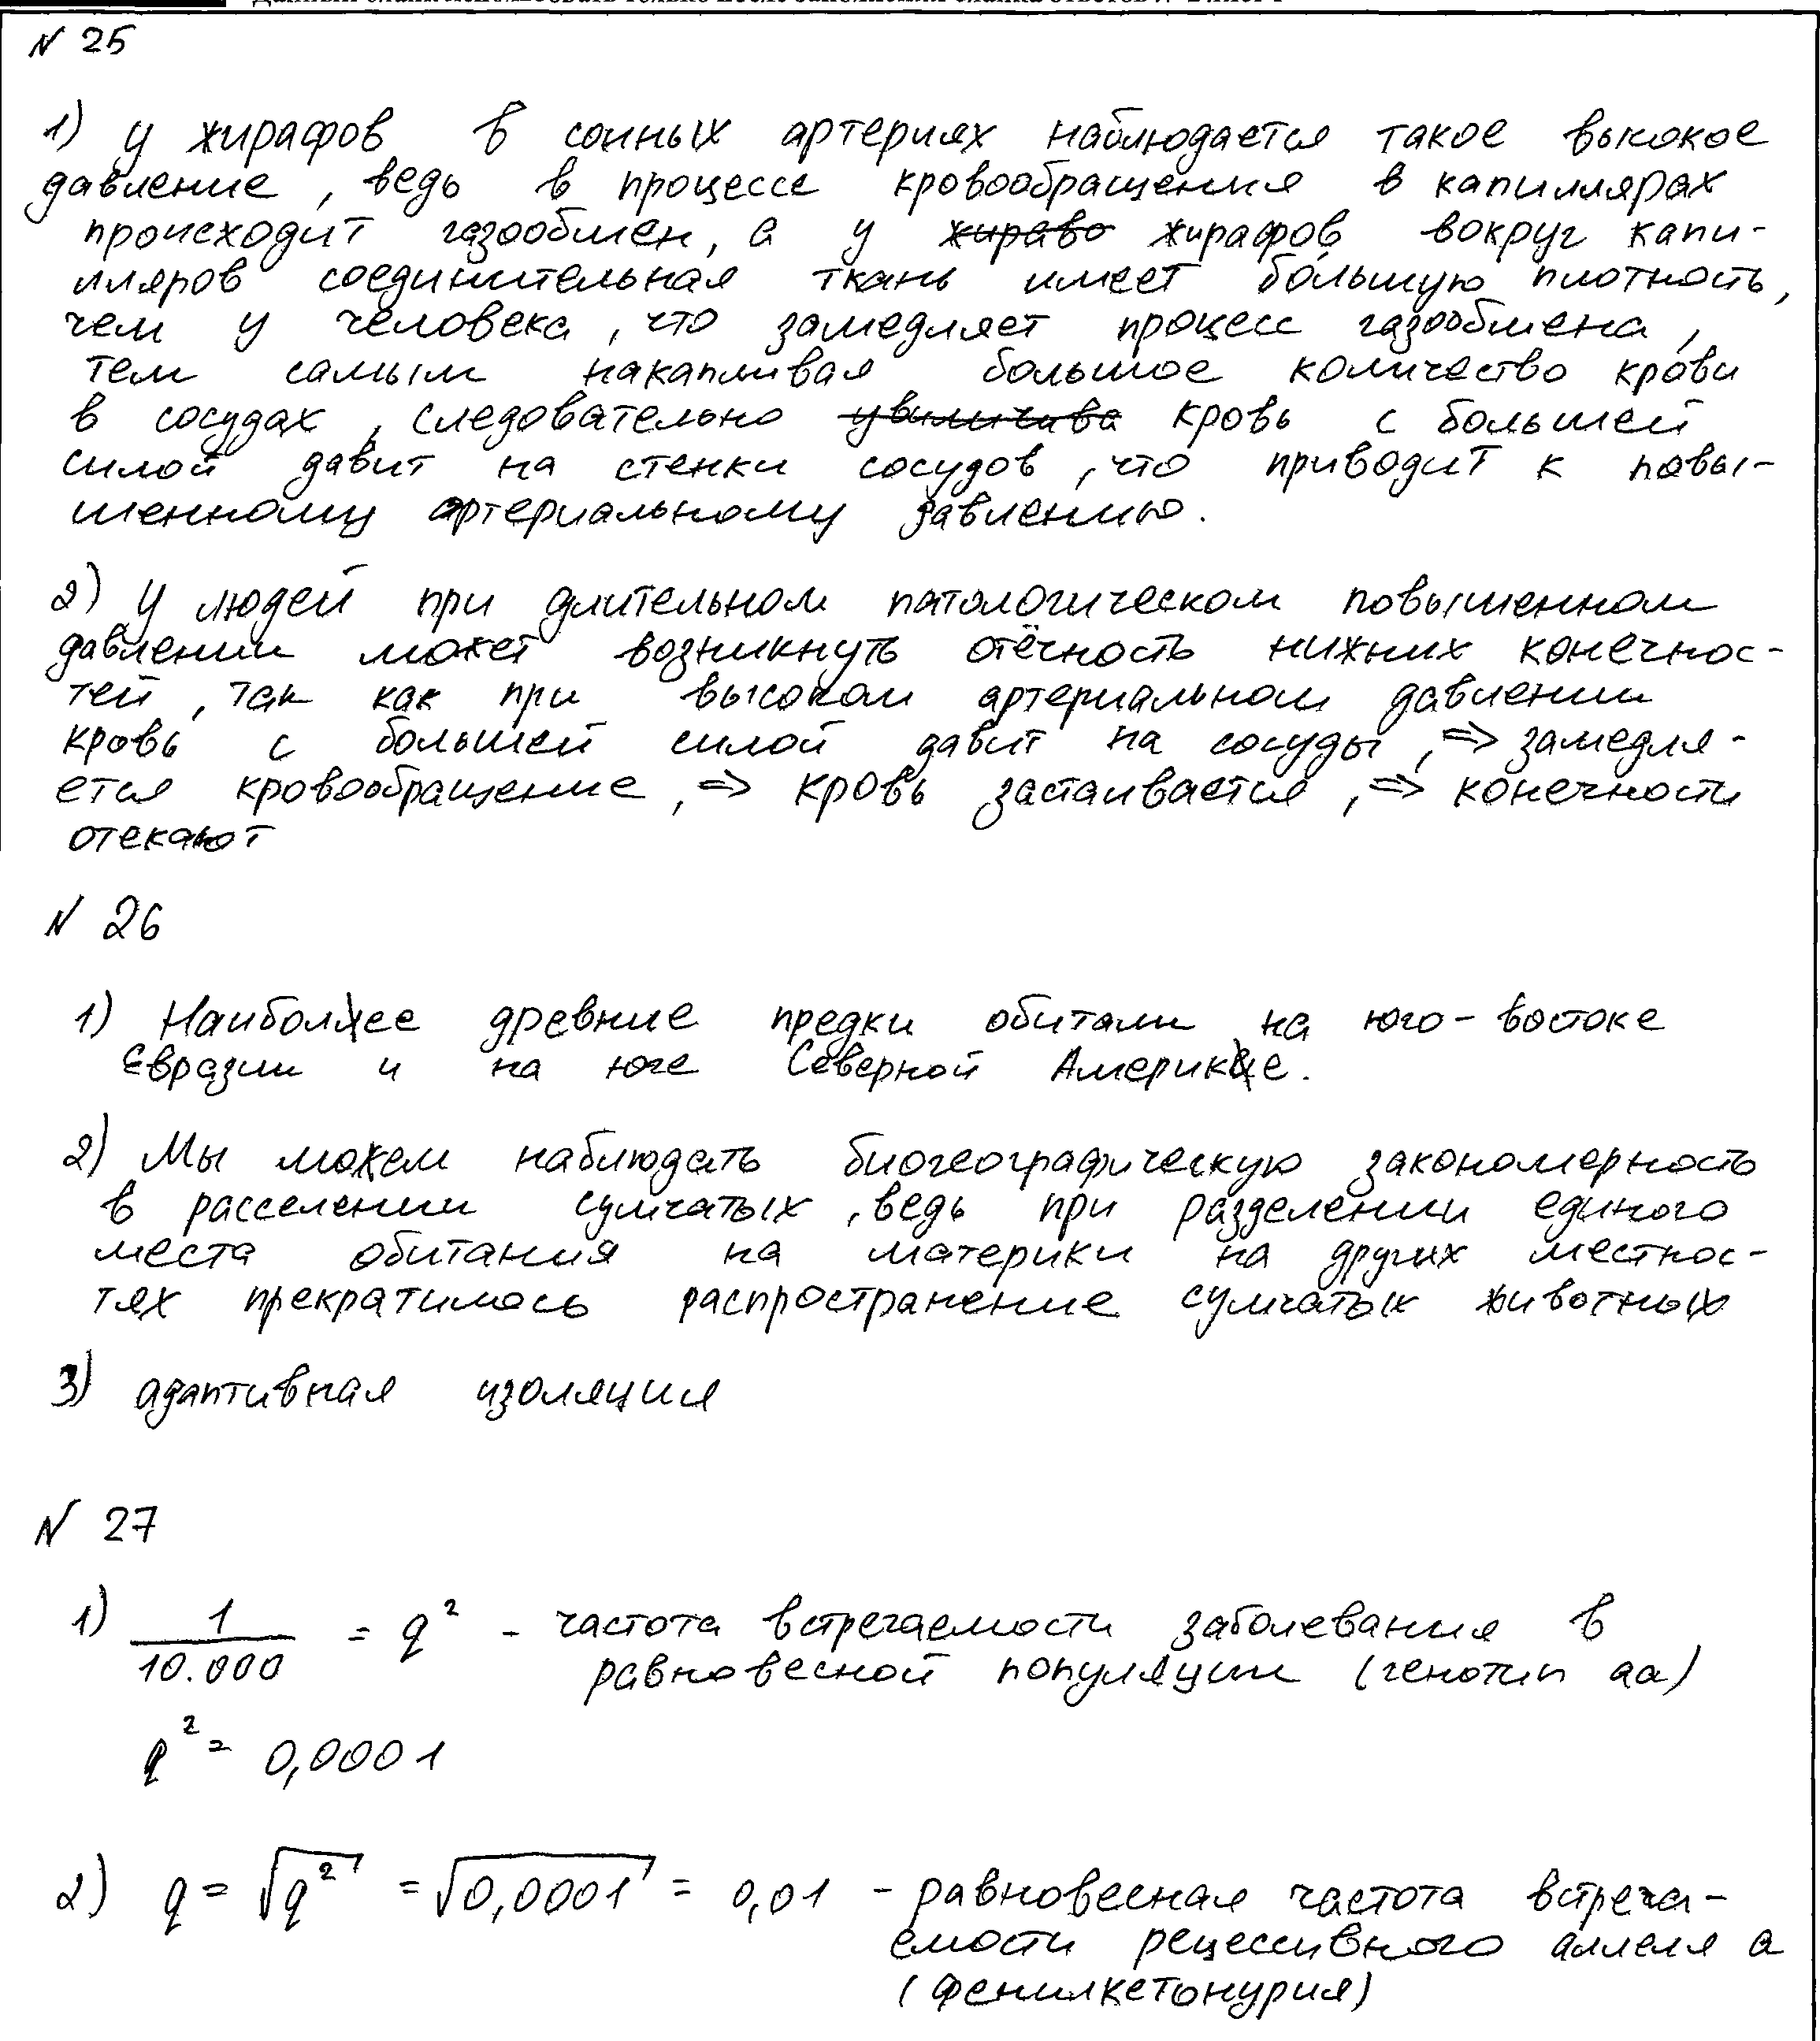 № 25
1) у жирафов в сонных артериях наблюдается такое высокое
давление, ведь в процессе кровообращения в капиллярах
происходит газообмен, а у жираво жирафов вокруг капи-
лляров соединительная ткань имеет бо́льшую плотность,
чем у человека, что замедляет процесс газообмена,
тем самым накапливая большое количество крови
в сосудах, следовательно увиличива кровь с большей
силой давит на стенки сосудов, что приводит к повы-
шенному артериальному давлению.
2) У людей при длительном патологическом повышенном
давлении может возникнуть отёчность нижних конечнос-
тей, так как при высоком артериальном давлении
кровь с большей силой давит на сосуды, => замедля-
ется кровообращение, => кровь застаивается, => конечности
отекают
№ 26
1) Наиболее древние предки обитали на юго-востоке
Евразии и на юге Северной Америке.
2) Мы можем наблюдать биогеографическую закономерность
в расселении сумчатых, ведь при разделении единого
места обитания на материки на других местнос-
тях прекратилось распространение сумчатых животных
3) адаптивная изоляция
№ 27
1) 1/10.000 = q² - частота встречаемости заболевания в
равновесной популяции (генотип аа)
q² = 0,0001
2) q = √q² = √0,0001 = 0,01 - равновесная частота встреча-
емости рецессивного аллеля а
(фенилкетонурия)